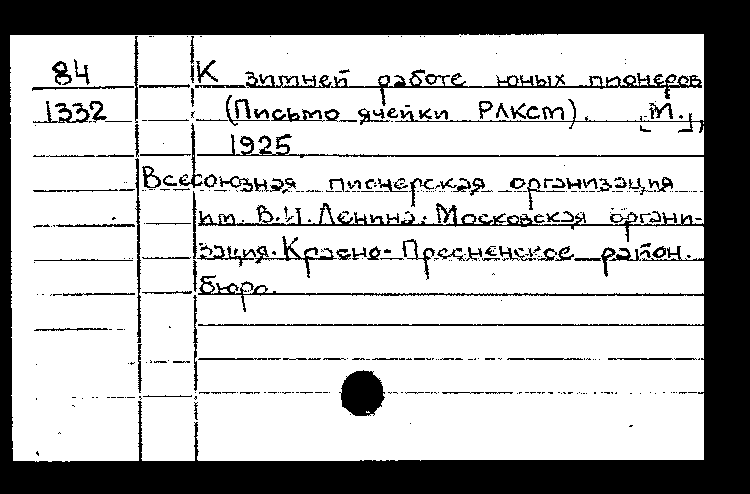 84 К зимней работе юных пионеров
1332 (Письмо ячейки РЛКСМ). [М.],
1925.
Всесоюзная пионерская организация
им. В.И. Ленина. Московская органи-
зация. Красно-Пресненское район.
бюро.